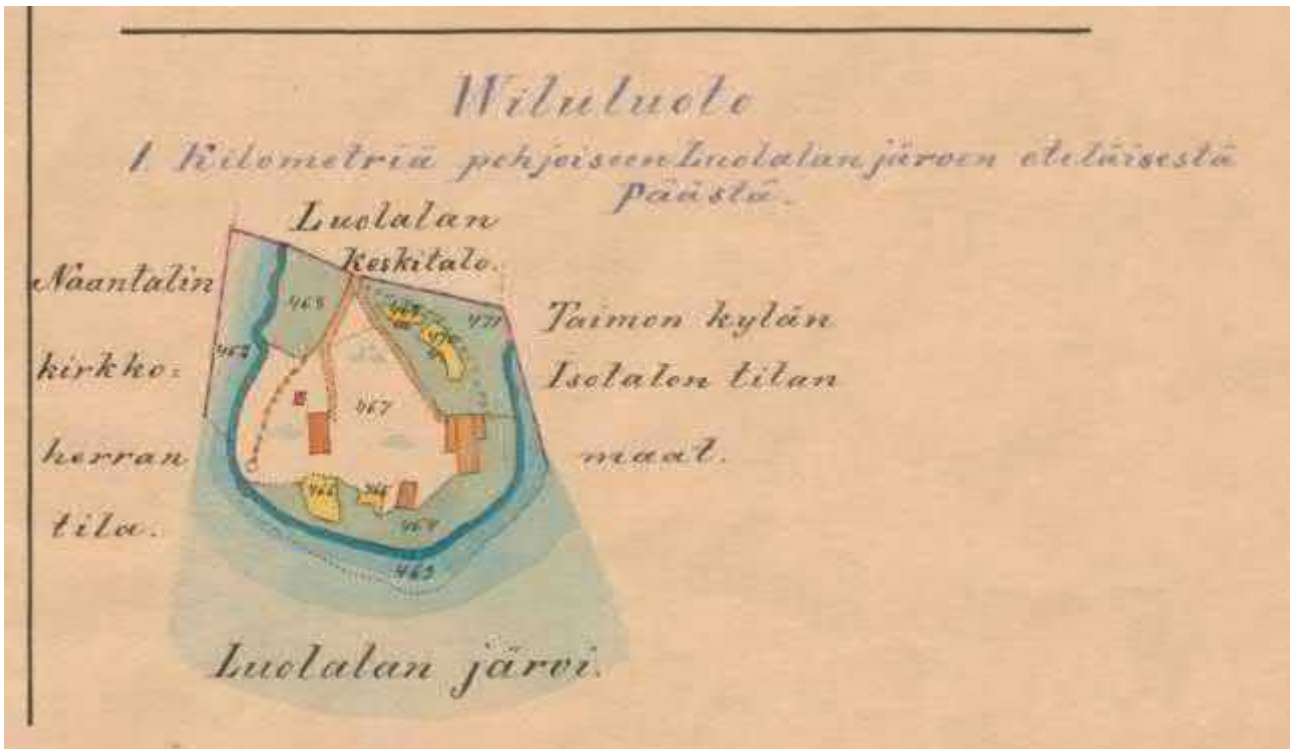 Wiluluoto
1 Kilometriä pohjoiseen Luolalan järven eteläisestä
päästä.
Luolalan
keskitalo.
Naantalin
kirkko=
herran
tila.
Taimon kylän
Isotalon tilan
maat.
471
467
464
463
Luolalan järvi.